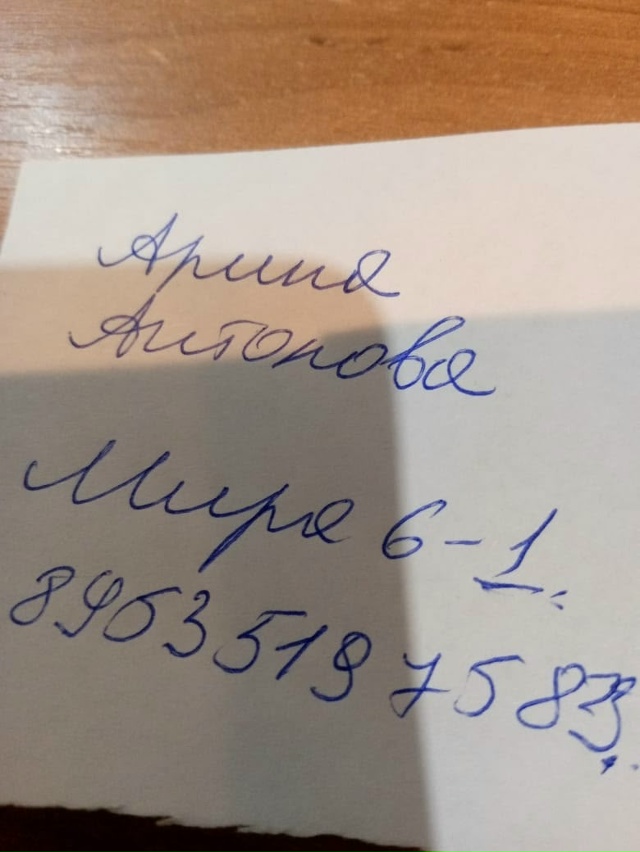 Арина
Антонова
Мира 6-1.
89535197583.